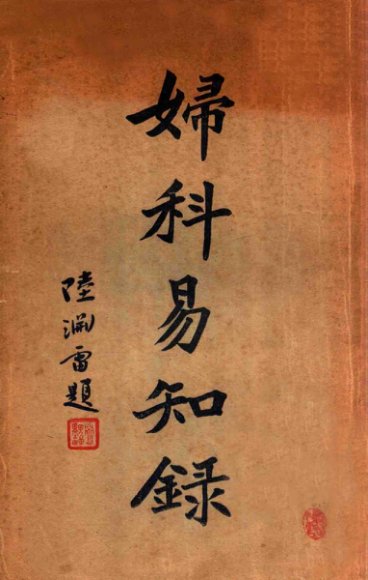 婦科易知錄
陸淵雷題